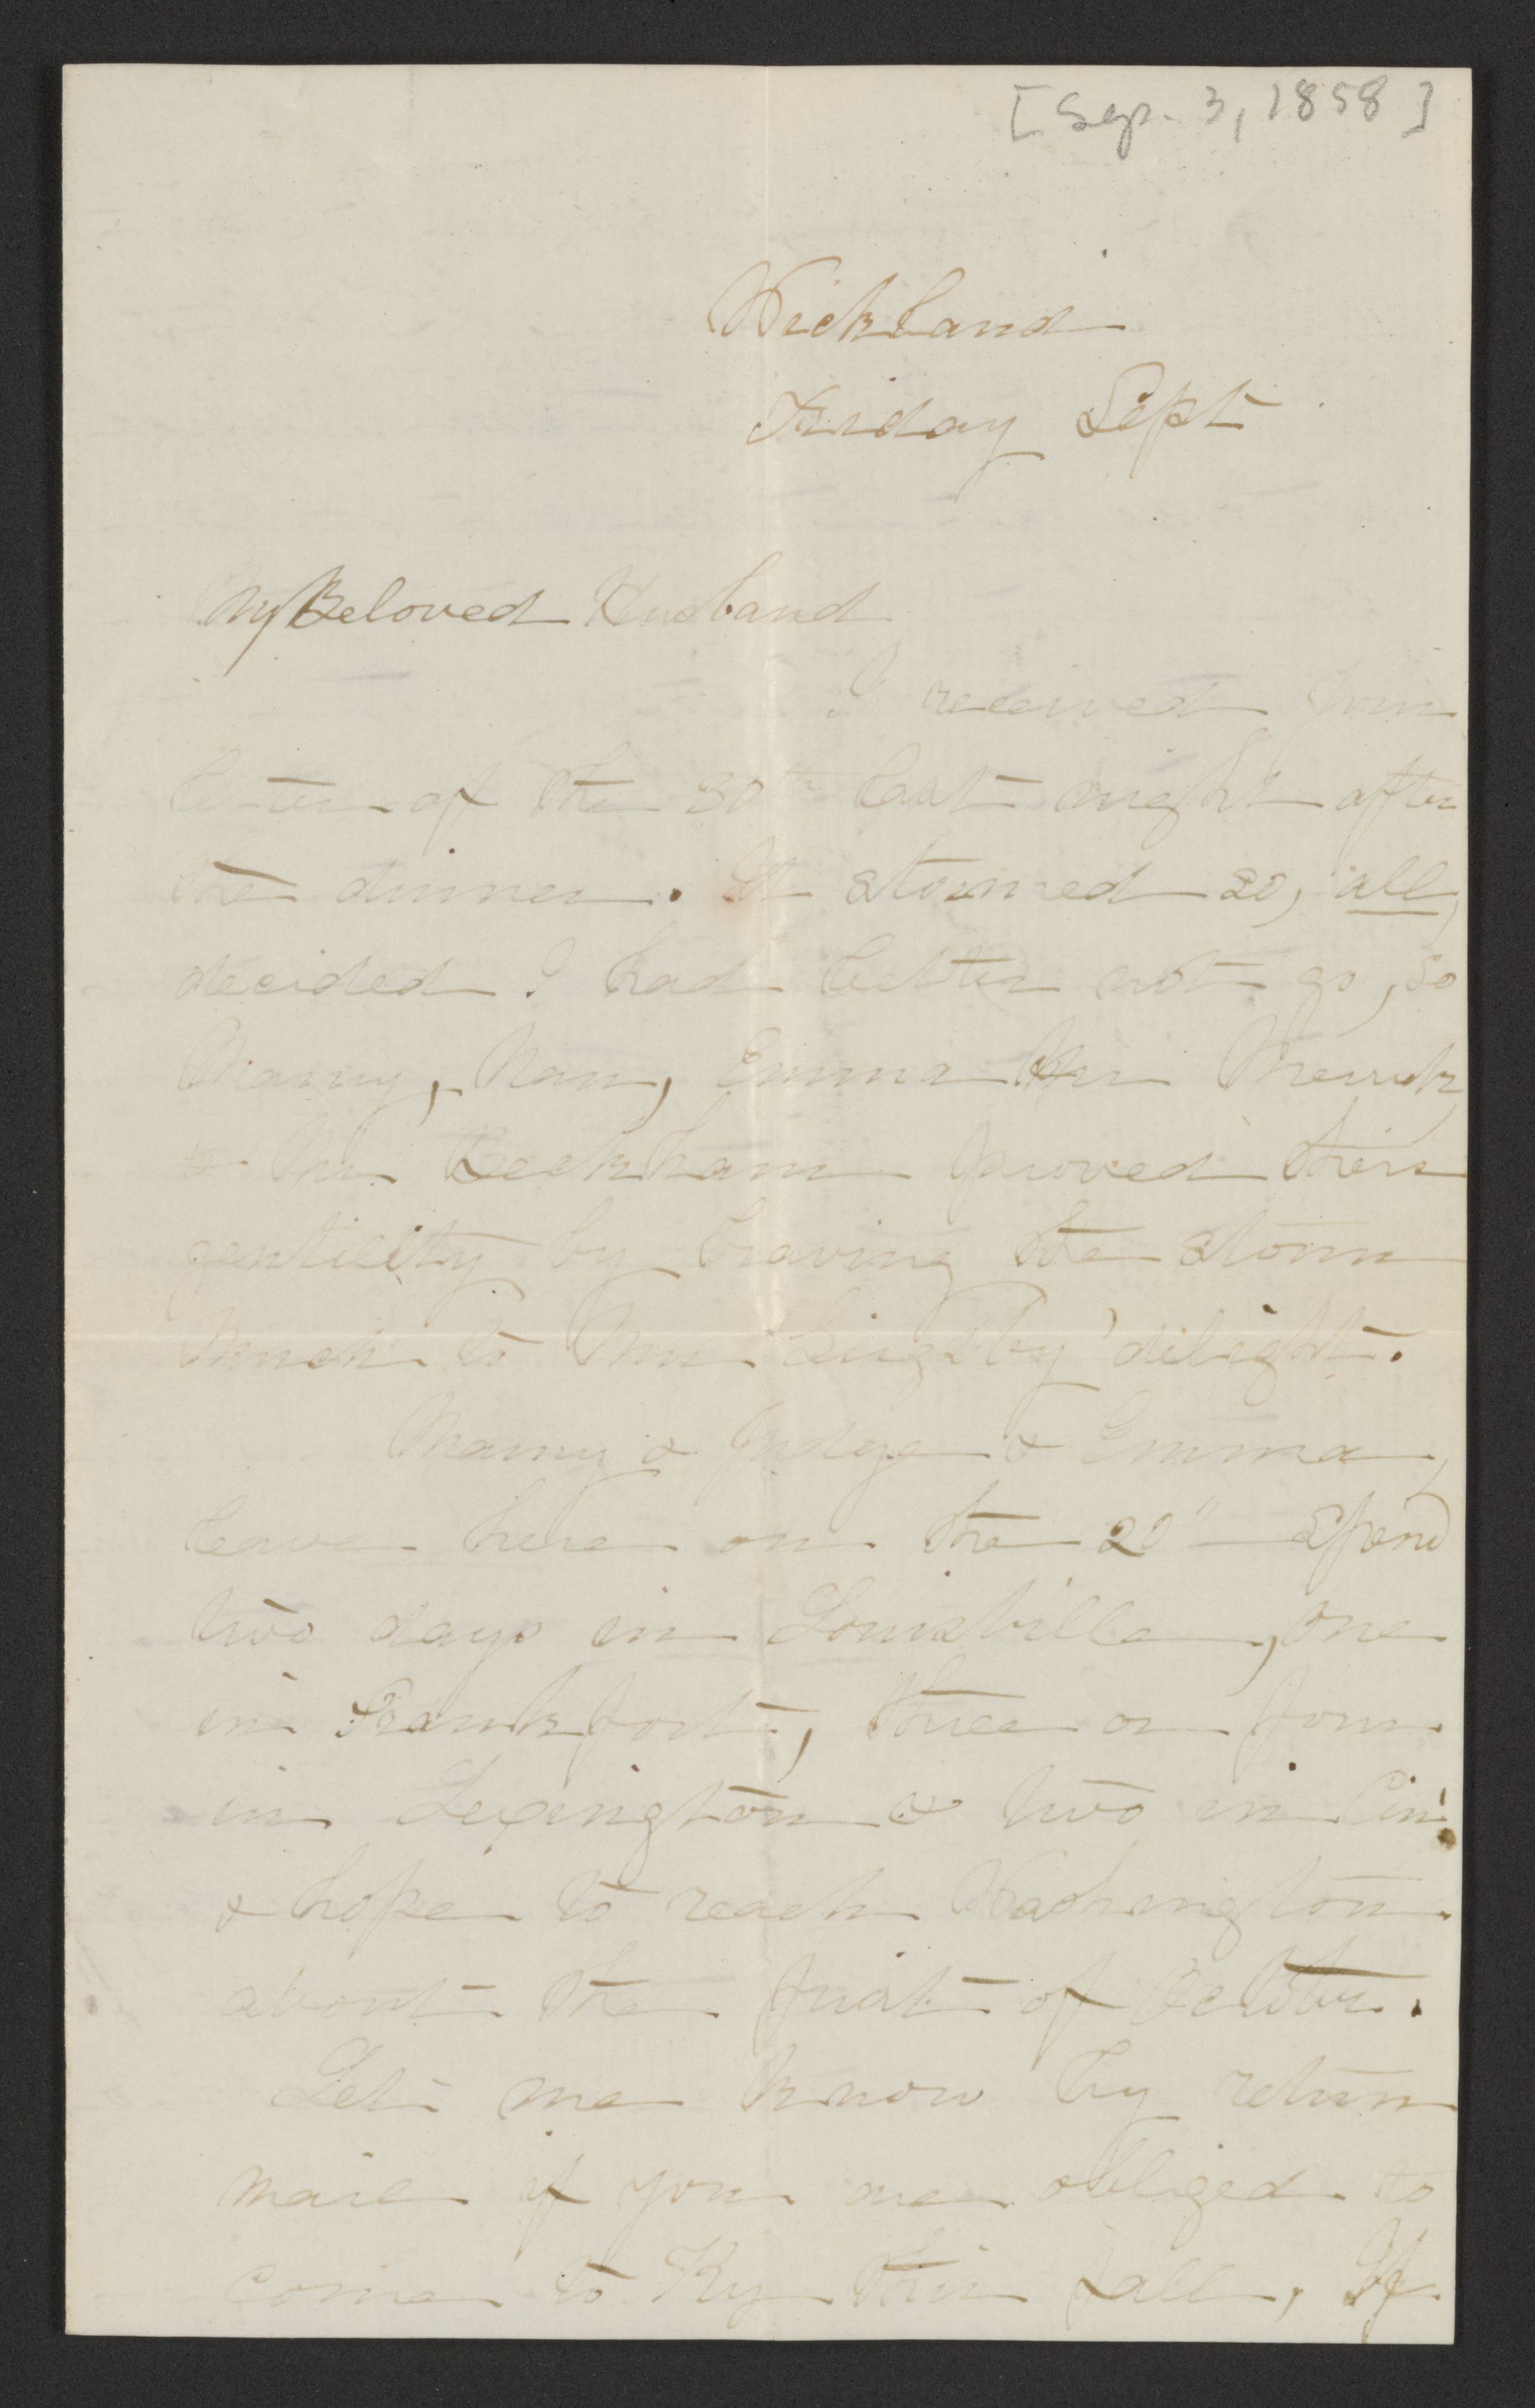 [Sep. 3, 1858]
Wickland
Friday Sept
My Beloved Husband
I received your
letter of the 30th last night after
the dinner. It stormed so, all,
decided I had better not go, so
Mamy, Nan, Emma Mr Merrick
& Mr Beckham proved their
gentility by braving the storm
much to Mrs delight.
Mamy & Judge & Emma,
leave here on the 20" spend
two days in Louisville, one
in Frankfort, three or four
in Lexington & two in Cin'
& hope to reach Washington
about the first of October.
Let me know by return
mail if you are obliged to
come to Ky this fall, If